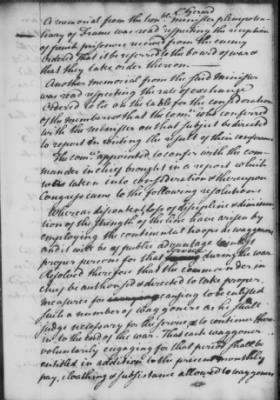 C. Gerard
A memorial from the honble. minister plenipoten-
tiary of France was read respecting the reception
of french prisoners received from the enemy
Ordered That it be referred to the board of war &
that they take order thereon
Another memorial from the said minister
was read respecting the rate of exchange
Ordered to lie on the table for the consideration
of the members & that the comee. who conferred
with the minister on that subject be directed
to report in writing the result of their conference
The comee. appointed to confer with the com-
mander in chief brought in a report which
was taken into consideration & thereupon
Congress came to the following resolutions
Whereas discontent, loss of discipline & diminu-
tion of the strength of the line have arisen by
employing the continental troops as waggoners
and it will be of public advantage to enlist
proper persons for that service during the war
Resolved therefore that the commander in
chief be authorised & directed to take proper
measures for causing to be enlisted
such a number of waggoners as he shall
judge necessary for the service, to continue there
in to the end of the war. That each waggoner
voluntarily engaging for that period shall be
entitled in addition to the present monthly
pay, cloathing & subsistance allowed to waggoners